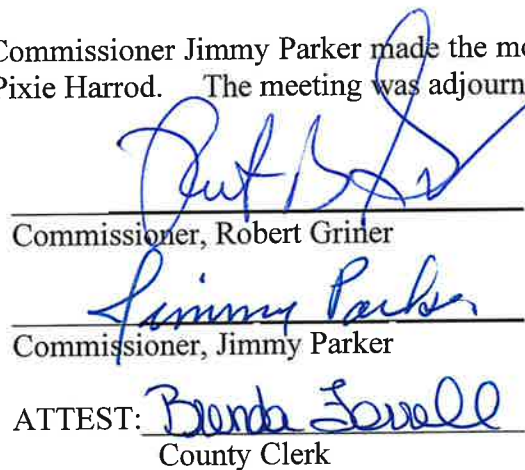 Commissioner Jimmy Parker made the mo
Pixie Harrod. The meeting was adjourn
Commissioner, Robert Griner
Jimmy Parker
Commissioner, Jimmy Parker
ATTEST: Brenda
County Clerk